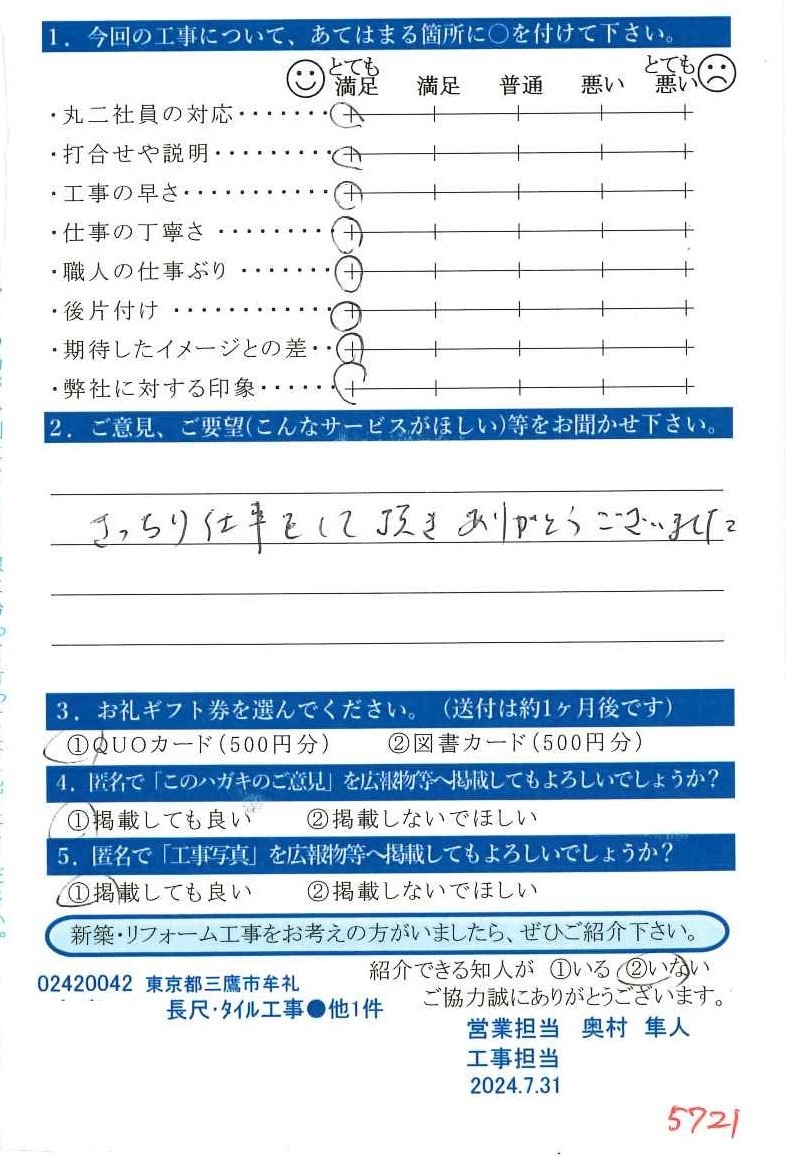 1．今回の工事について、あてはまる箇所に○を付けて下さい。
とても満足 満足 普通 悪い とても悪い
・丸二社員の対応・・・・・・・
・打合せや説明・・・・・・・・・
・工事の早さ・・・・・・・・・・・
・仕事の丁寧さ ・・・・・・・・
・職人の仕事ぶり ・・・・・・・
・後片付け ・・・・・・・・・・・・
・期待したイメージとの差・・
・弊社に対する印象・・・・・・
2．ご意見、ご要望(こんなサービスがほしい)等をお聞かせ下さい。
きっちり仕事をして頂きありがとうございました
3．お礼ギフト券を選んでください。（送付は約1ヶ月後です）
①QUOカード(500円分) ②図書カード(500円分)
4．匿名で「このハガキのご意見」を広報物等へ掲載してもよろしいでしょうか？
①掲載しても良い ②掲載しないでほしい
5．匿名で「工事写真」を広報物等へ掲載してもよろしいでしょうか？
①掲載しても良い ②掲載しないでほしい
新築・リフォーム工事をお考えの方がいましたら、ぜひご紹介下さい。
紹介できる知人が ①いる ②いない
ご協力誠にありがとうございます。
02420042 東京都三鷹市牟礼
長尺・タイル工事●他1件
営業担当 奥村 隼人
工事担当
2024.7.31
5721